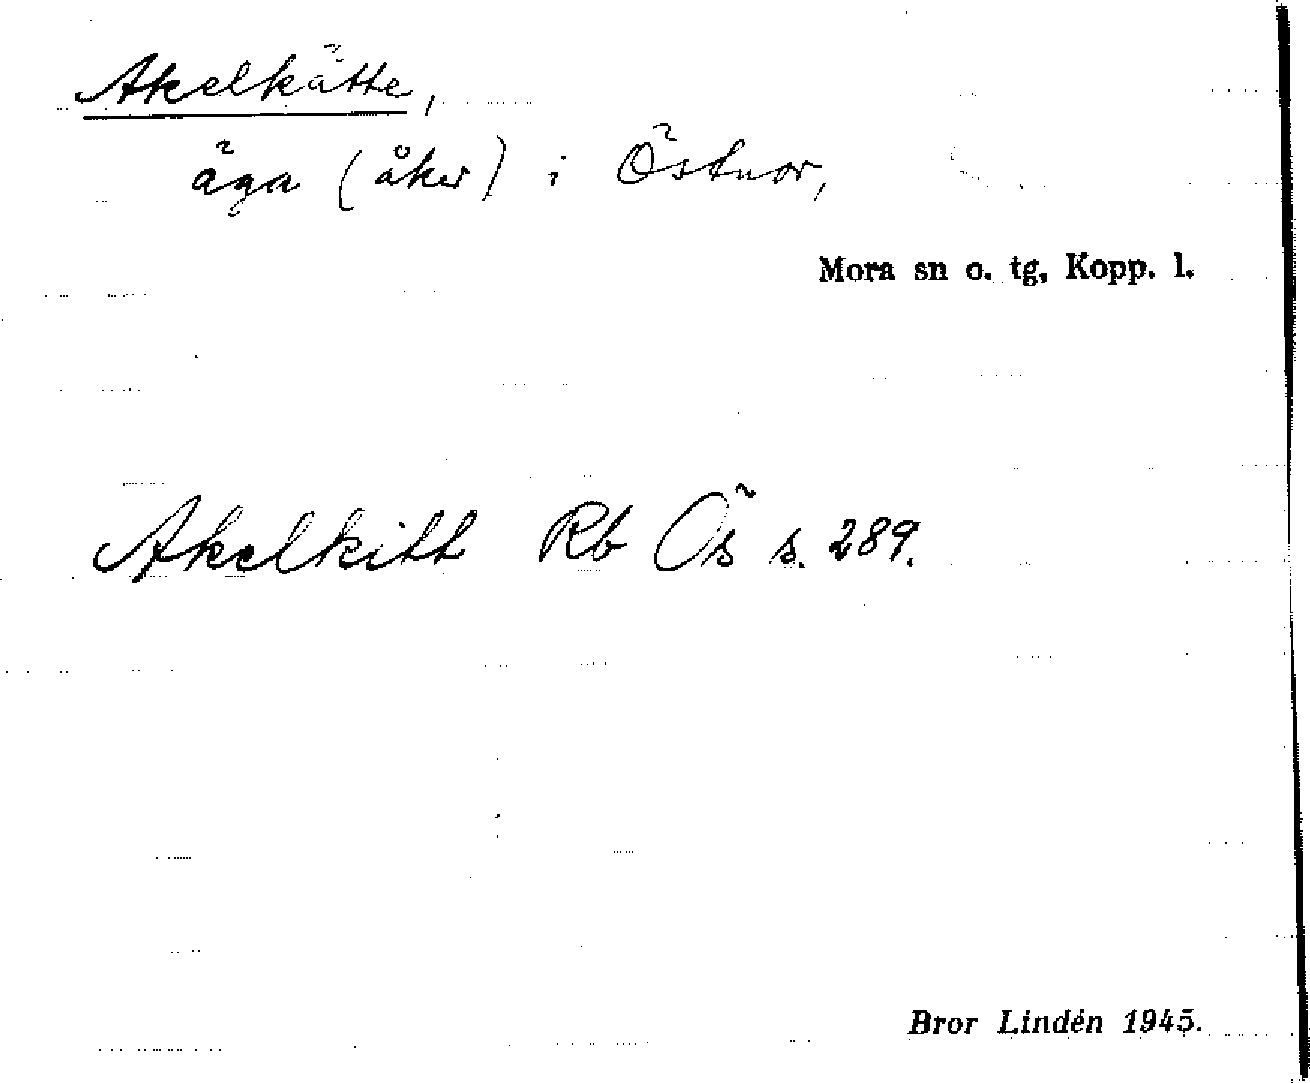 Akelkätte,
äga (åker) i Östnor,
Mora sn o. tg, Kopp. l.
Akelkitt Rb Ös s. 289.
Bror Lindén 1945.